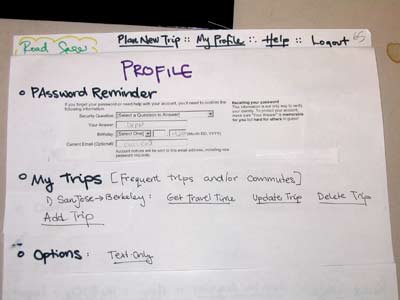 Road Sage
Plan New Trip :: My Profile :: Help :: Logout
PROFILE
Password Reminder
If you forget your password or need help with your account, you'll need to confirm the following information.
Security Question: [Select a Question to Answer]
Your Answer:
Birthday: [Select One] (Month DD, YYYY)
Current Email (Optional)
Account notices will be sent to this email address, including new password requests.
Recalling your password
This information is our only way to verify your identity. To protect your account, make sure "Your Answer" is memorable for you but hard for others to guess!
My Trips [Frequent trips and/or commutes]
1) San Jose → Berkeley: Get Travel Time Update Trip Delete Trip
Add Trip
Options: Text-Only